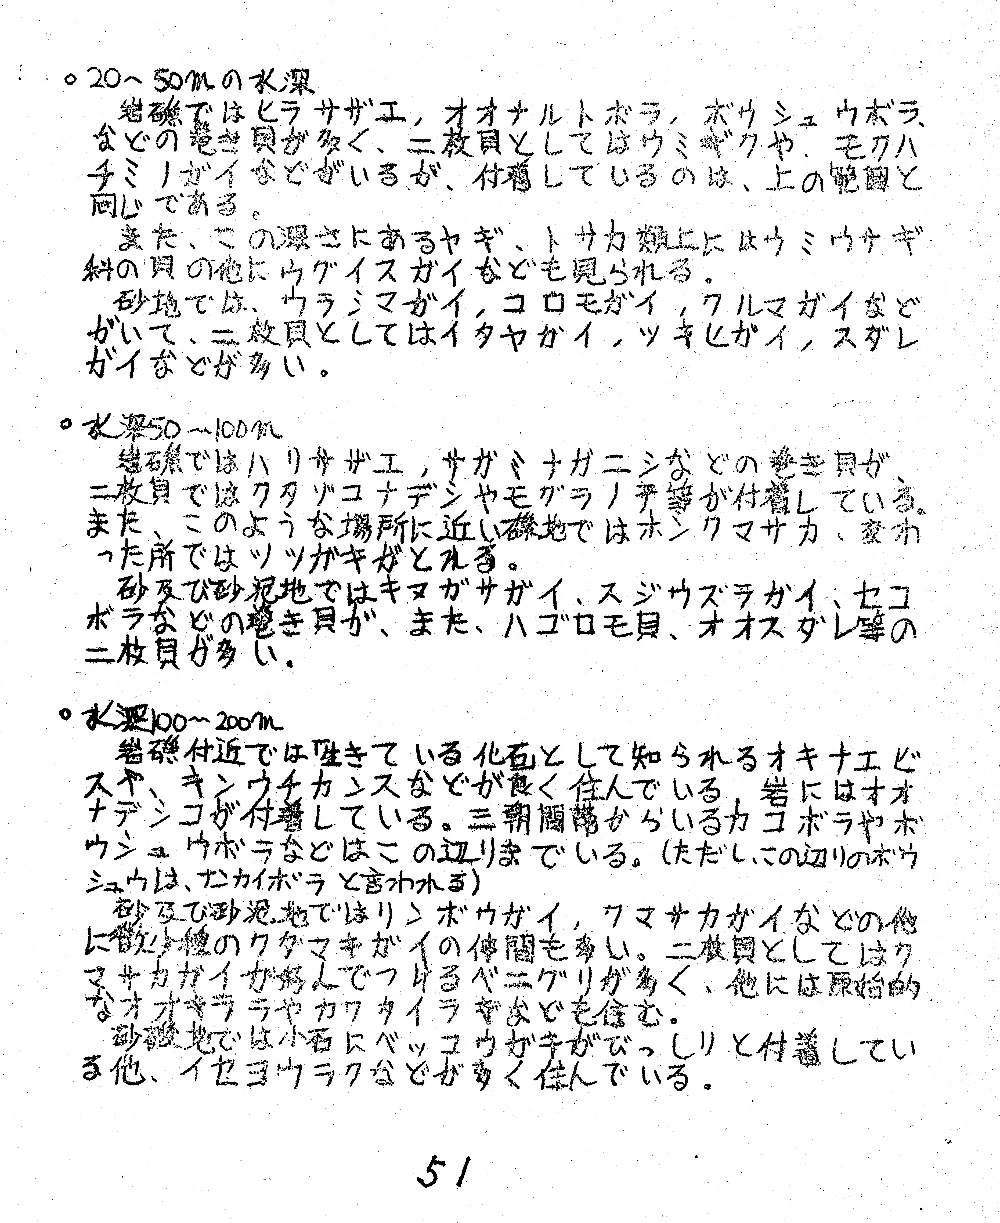 ○20～50mの水深
岩礁ではヒラサザエ,オオナルトボラ,ボウシュウボラ、
などの巻き貝が多く、二枚貝としてはウミギクや、モクハ
チミノガイなどがいるが、付着しているのは、上の範囲と
同じである。
また、この深さにあるヤギ、トサカ類上にはウミウサギ
科の貝の他にウグイスガイなども見られる。
砂地では、ウラシマガイ,コロモガイ,クルマガイなど
がいて、二枚貝としてはイタヤガイ,ツキヒガイ,スダレ
ガイなどが多い。
○水深50～100m
岩礁ではハリサザエ,サガミナガニシなどの巻き貝が、
二枚貝ではクタゾコナデシやモグラノ手等が付着している。
また、このような場所に近い礫地ではホンクマサカ、変わ
った所ではツツガキがとれる。
砂及び砂泥地ではキヌガサガイ、スジウズラガイ、セコ
ボラなどの巻き貝が、また、ハゴロモ貝、オオスダレ等の
二枚貝が多い。
○水深100～200m
岩礁付近では「生きている化石として知られるオキナエビ
スや、キンウチカンスなどが良く住んでいる。岩にはオオ
ナデシコが付着している。三朝間帯からいるカコボラやボ
ウシュウボラなどはこの辺りまでいる。(ただし、この辺りのボウ
シュウは、ナンカイボラと言われる)
砂及び砂泥地ではリンボウガイ,クマサカガイなどの他
に数少種のクダマキガイの仲間も多い。二枚貝としてはク
マサカガイが好んでつけるベニグリが多く、他には原始的
なオオキララやカワタイラギなども住む。
砂礫地では小石にベッコウガキがびっしりと付着してい
る他、イセヨウラクなどが多く住んでいる。
51